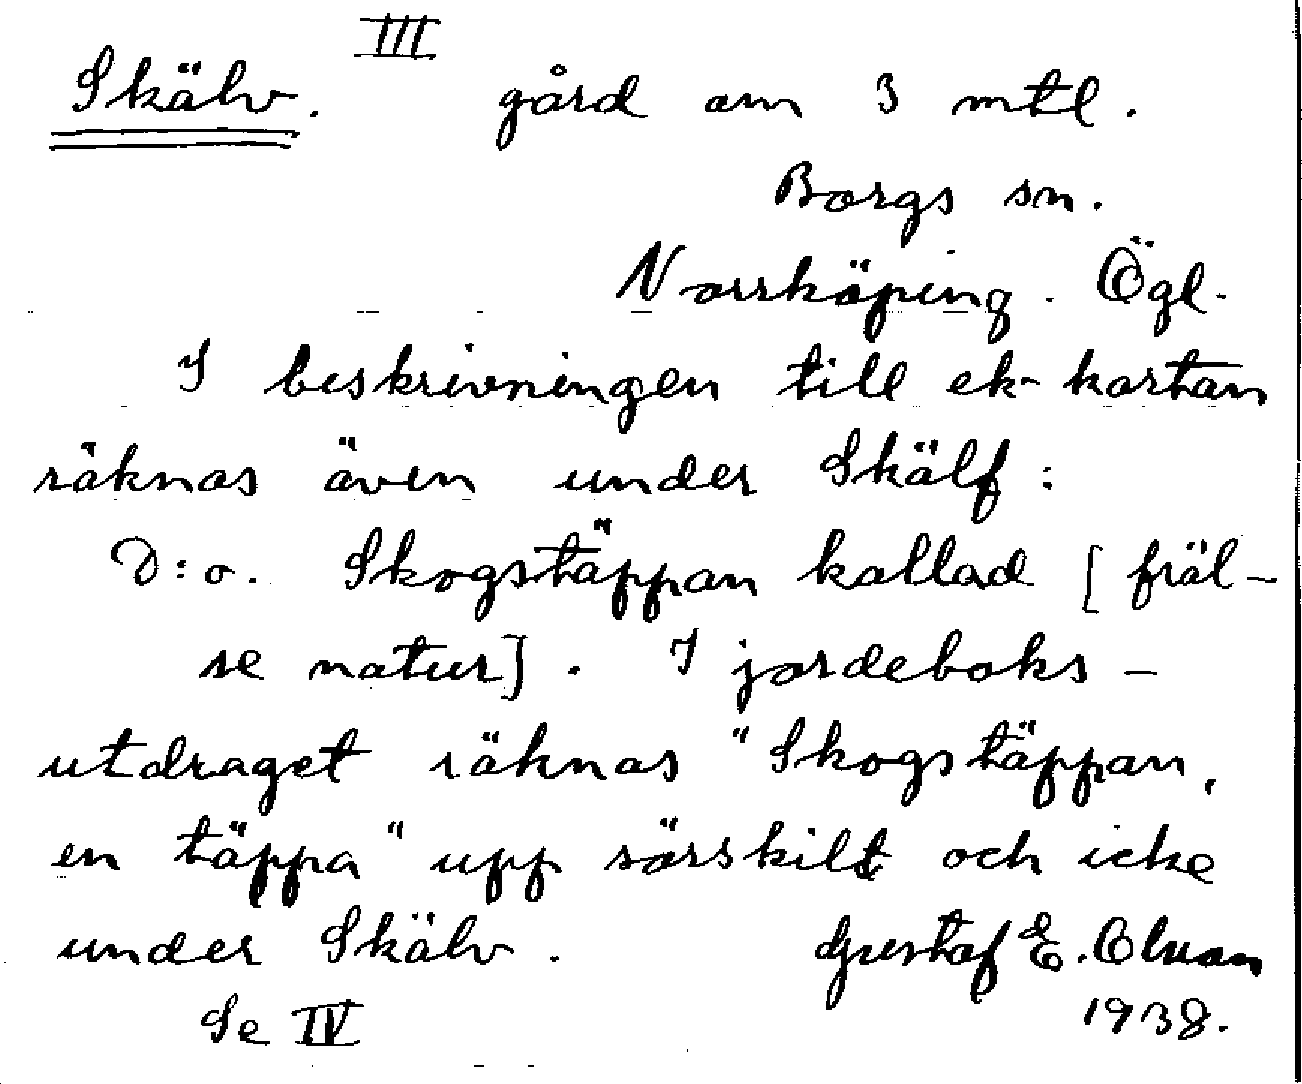 III
Skälv. gård om 3 mtl.
Borgs sn.
Norrköping. Ögl.
I beskrivningen till ek-kartan
räknas även under Skälf:
D:o. Skogstäppan kallad [fräl-
se natur]. I jordeboks-
utdraget räknas "Skogstäppan,
en täppa" upp särskilt och icke
under Skälv. Gustaf E.
Se IV 1938.